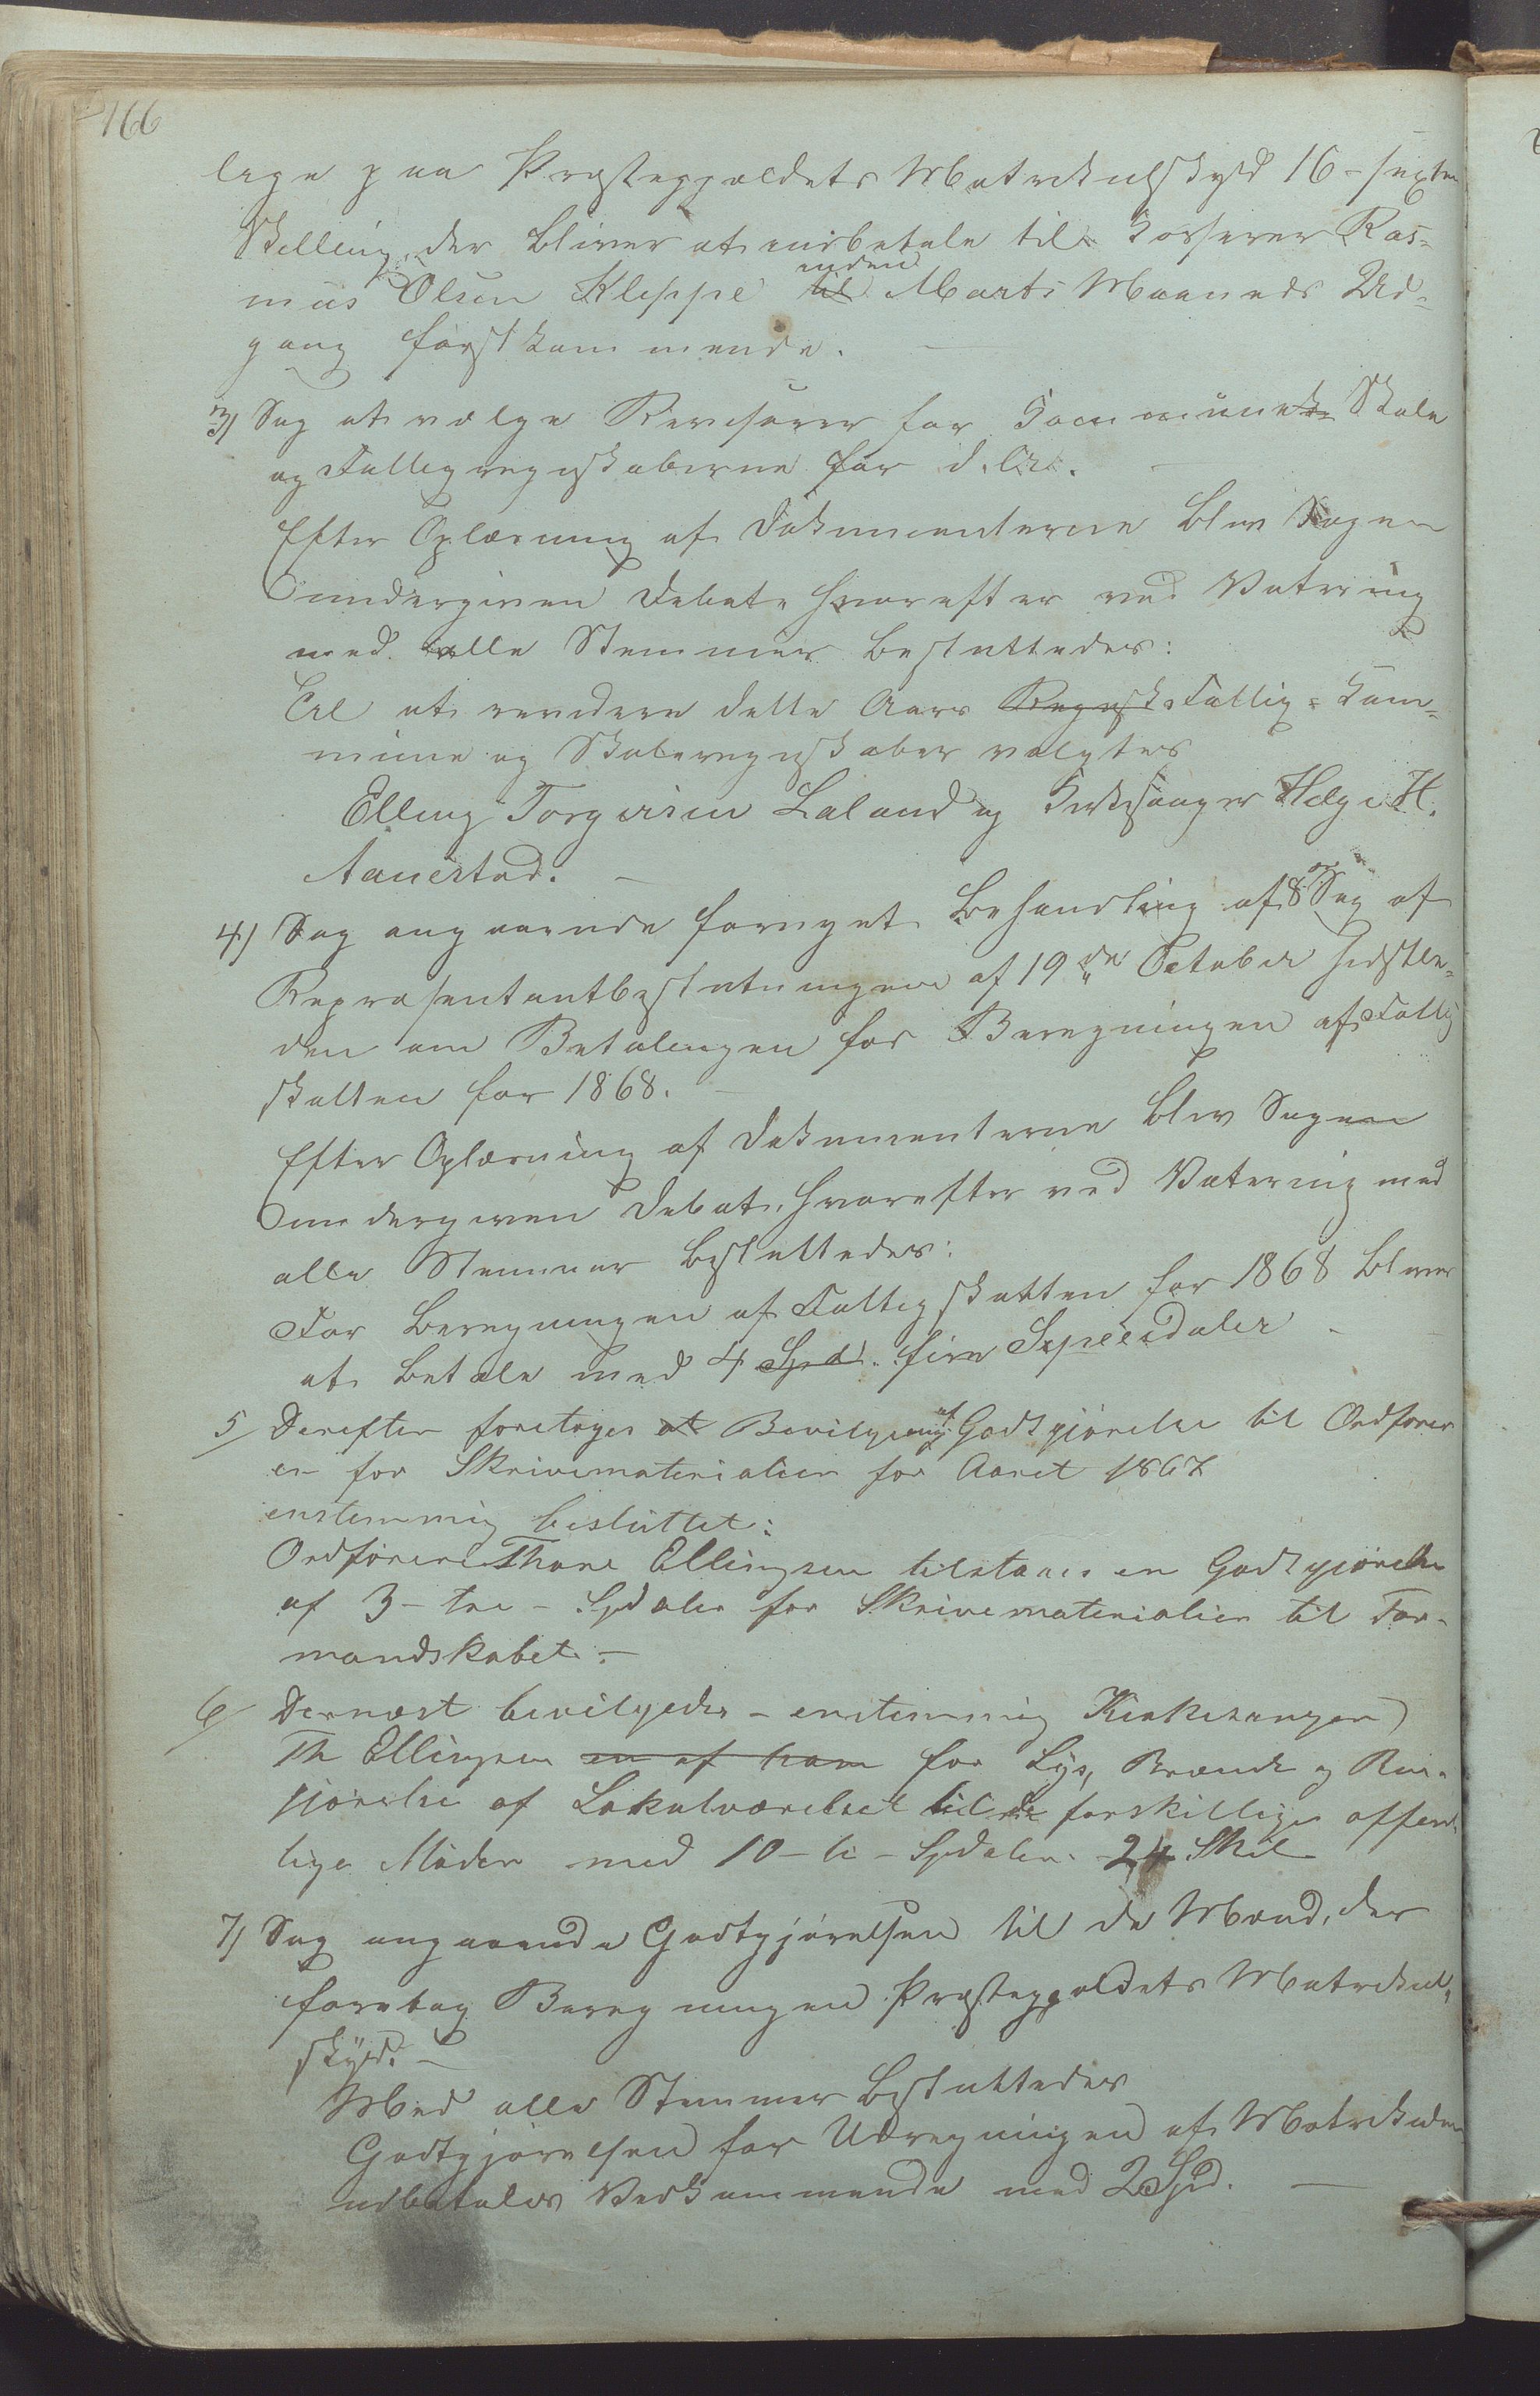 166
lige paa Præstegjældets Matrikulskyld 16 - sexten
Skilling, der bliver at indbetale til Kasserer Ras-
mus Olsen Kleppe til inden Marts Maaneds Ud-
gang förstkommende. —
3) Sag at vælge Revisorer for Kommune- Skole
og Fattigregnskaberne for d. A. —
Efter Oplæsning af Dokumenterne blev Sagen
undergiven Debat hvorefter ved Votering
med alle Stemmer besluttedes:
Til at revidere dette Aars Regnsk Fattig- Kom-
mune og Skoleregnskaber valgtes
Elling Torgersen Laland og Kirkesanger Helge H.
Aanestad. —
4) Sag angaaende fornyet Behandling af 8de Sag af
Repræsentantbeslutningen af 19de October sidstle-
den om Betalingen for Beregningen af Fattig
skatten for 1868. —
Efter Oplæsning af Dokumenterne blev Sagen
undergiven Debat, hvorefter ved Votering med
alle Stemmer besluttedes:
For Beregningen af Fattigskatten for 1868 bliver
at betale med 4 Spd. fire Speciedaler —
5/ Derefter foretoges at Bevilgning af Godtgjörelse til Ordförer
en for Skrivematerialier for Aaret 1867
enstemmig besluttet:
Ordföreren Thore Ellingsen tilstaaes en Godtgjörelse
af 3 - tre - Spdaler for Skrivematerialier til For-
mandskabet. —
6/ Dernæst bevilgedes - enstemmig Kirkesanger
Th Ellingsen en af ham for Lys, Brænde og Ren-
gjörelse af Lokalværelset til de forskillige offent-
lige Möder med 10 - ti - Spdaler. 24 Skil
7) Sag angaaende Godtgjörelsen til de Mænd, der
foretog Beregningen Præstegjældets Matrikul-
skyld. —
Med alle Stemmer besluttedes
Godtgjörelsen for Udregningen af Matrikulen
udbetales Vedkommende med 2 Spd. —